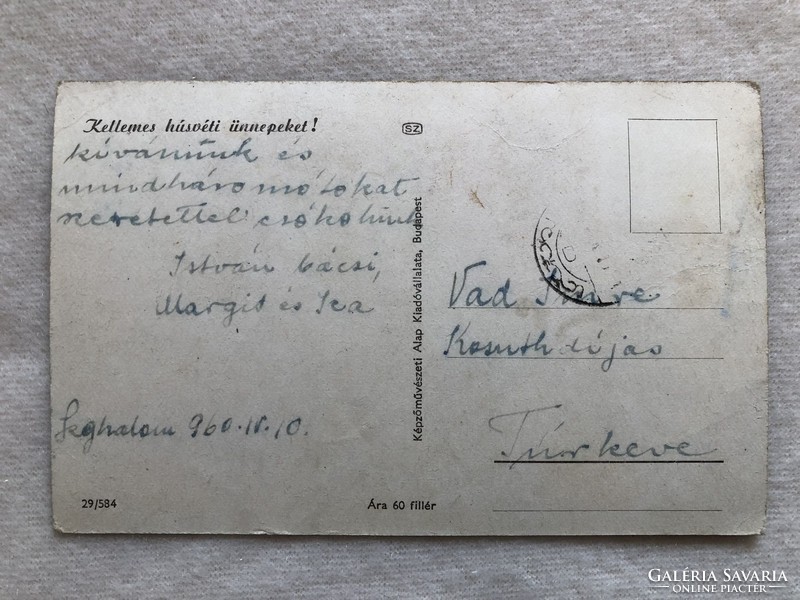 Kellemes húsvéti ünnepeket!
kívánunk és
mindhármótokat
szeretettel csókolunk
István bácsi,
Margit és Ica
Szeghalom 960.IV.10.
29/584
Ára 60 fillér
Képzőművészeti Alap Kiadóvállalata, Budapest
SZ
Vad Imre
Kosuth díjas
Túrkeve
GALÉRIA SAVARIA
ONLINE PIACTÉR